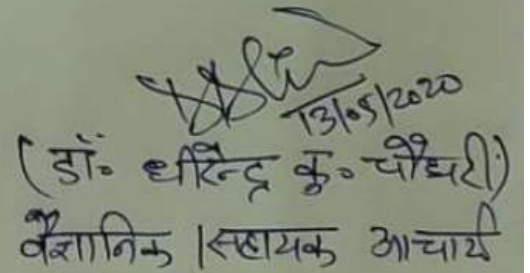 13/05/2020
(डॉ॰ धीरेन्द्र कु॰ चौधरी)
वैज्ञानिक / सहायक आचार्य